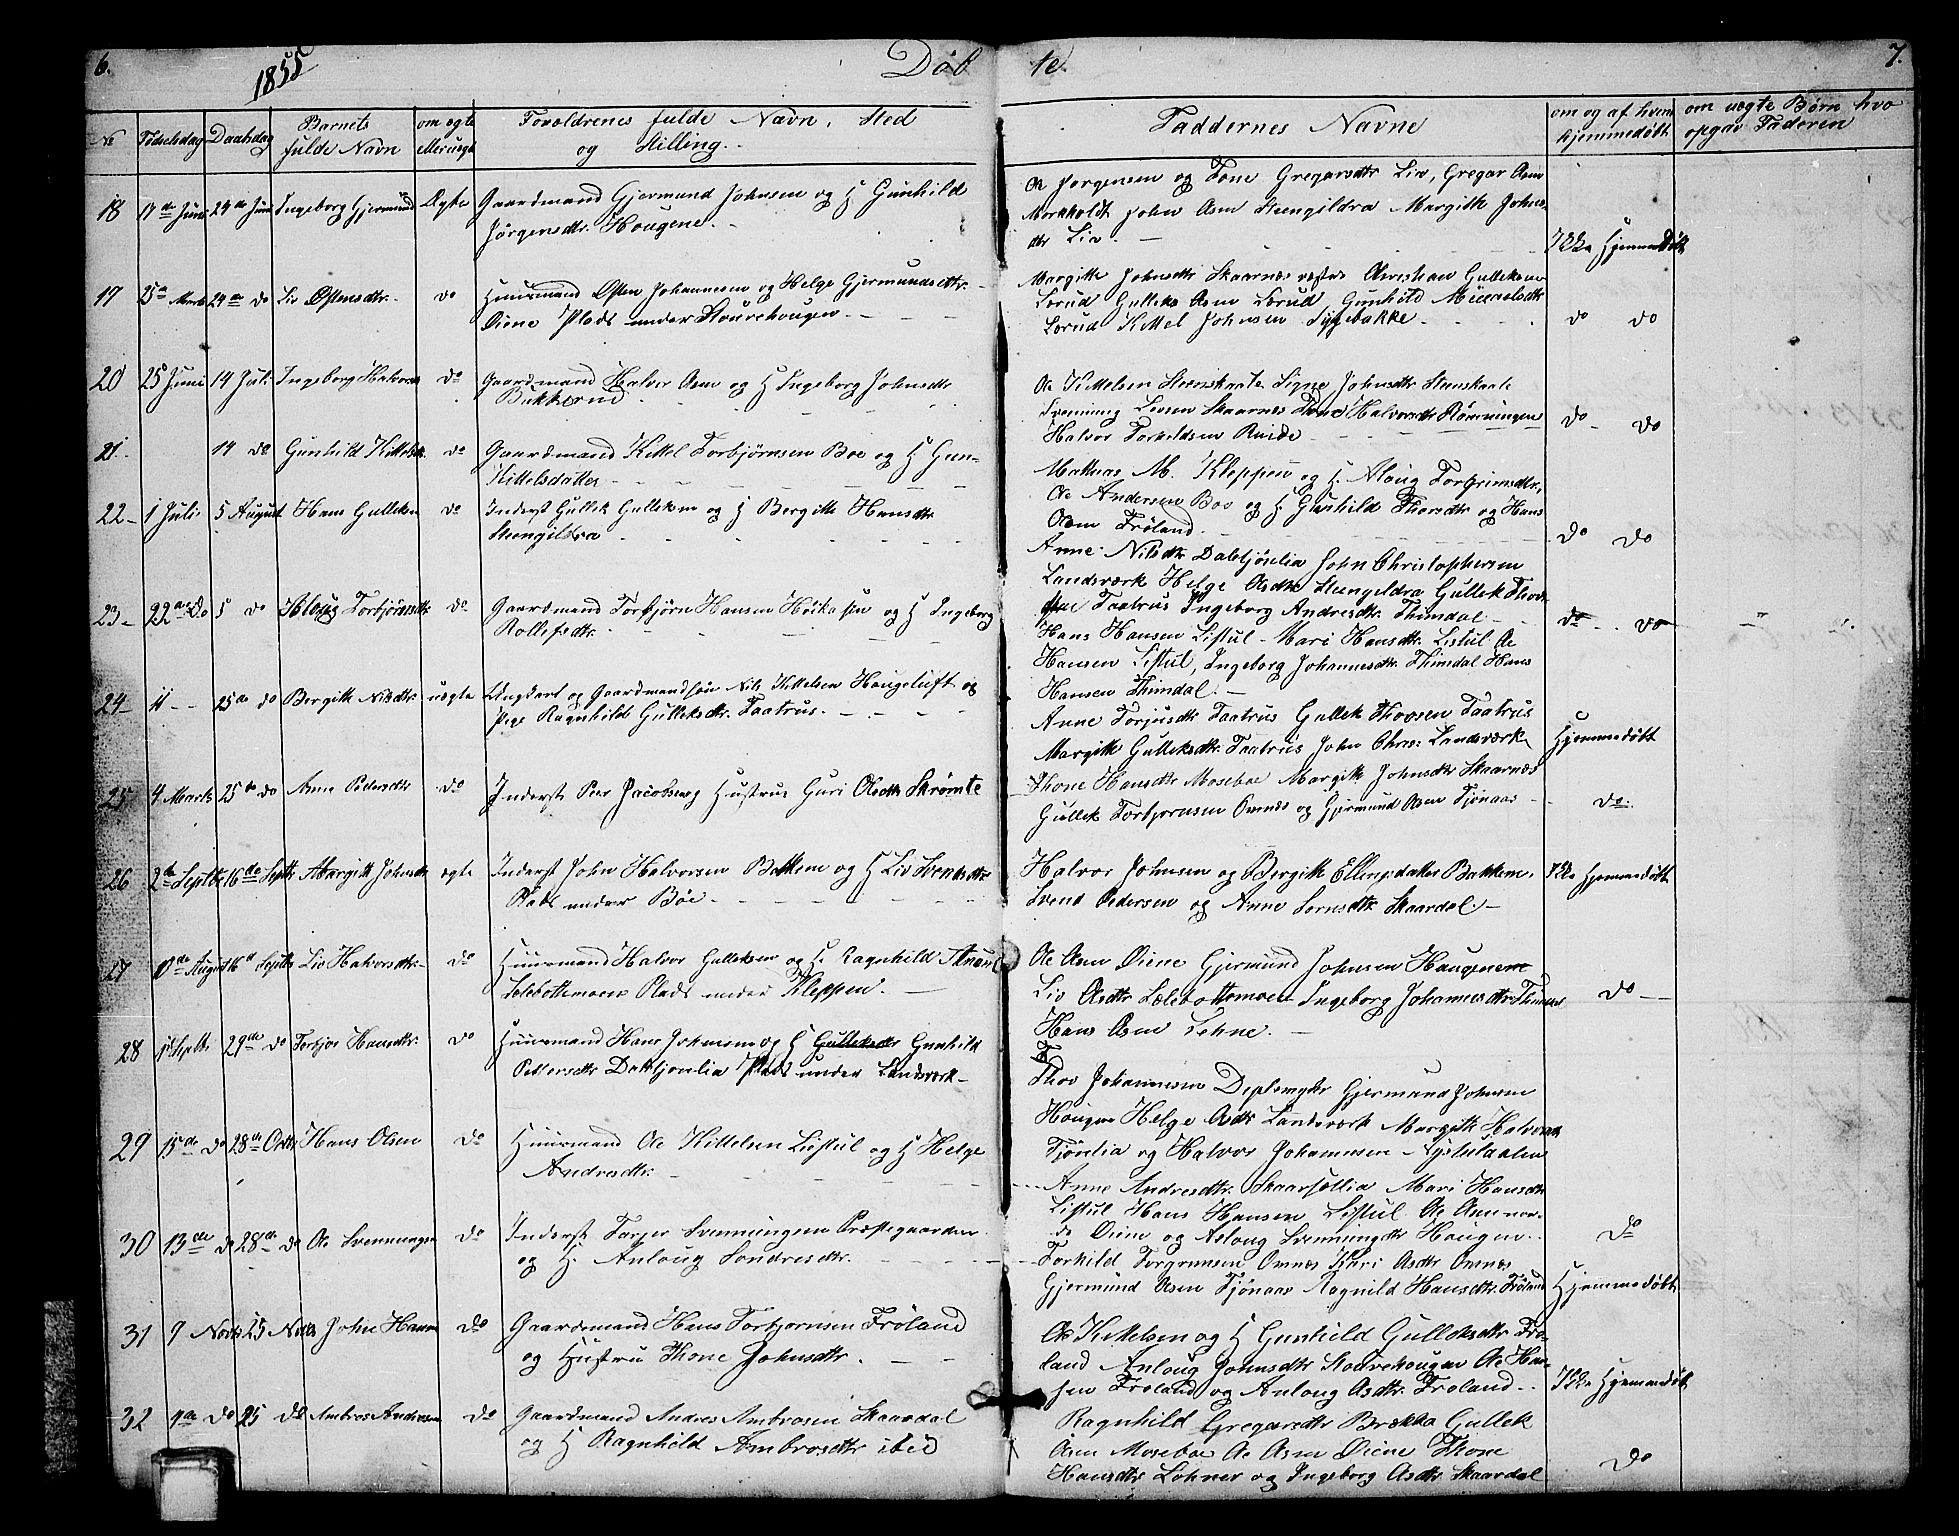 6.
1855
Døb
te.
7.
No
Fødselsdag
Daabsdag
Barnets
fulde Navn
om ægte
eller uægte
Forældrenes fulde Navn, Sted
og Stilling.
Faddernes Navne
om og af hvem
hjemmedøbt
om uægte Børn hvo
opgav Faderen
18 17de Juni 24de Juni Ingeborg Gjermund Ægte Gaardmand Gjermund Johnsen og H Gunhild
Jörgensdtr. Hougene.
Oe Jorgensen og Tone Gregarsdtr Liv, Gregar Asm
Morkholdt John Asm Steengildra Margith Johns-
dtr Liv.
Ikke Hjemmedøbt
19 25de Marts 24de do Liv Østensdtr. do Huusmand Østen Johannesen og Helge Gjermundsdtr.
Øiene Plads under Stourehougen.
Margith Johnsdtr Skaarnæs Gulleksen
Lorud Gulleks Asm Lorud, Gunhild
Lorud Kittel Johnsen Sygebakke.
do do
20 25 Juni 14 Juli Ingeborg Halvors do Gaardmand Halvor Asm og H Ingeborg Johnsdtr
Bukkerud
Oe Kittelsen Steenskaate Signe Johnsdtr Stenskaate
Svennung Levsen Skaarnæs Thone Halvorsdtr Rönningen
Halvor Torkeldsen Rui de
do do
21. 14 do Gunhild Kittelsdtr. do Gaardmand Kittel Torbjørnsen Boe og H Gun-
Kittelsdatter
Mathias M. Kleppen og H. Aloug Torgrimsdtr,
Oe Andersen Boe og H Gunhild Thorsdtr og Hans
Asm Frøland.
do do
22 1 Juli 5 August Hans Gulleksen do Inderst Gullek Gulleksen og H Bergith Hansdtr
Steengildra
Anne Nilsdtr Dalstjønlia John Christophersen
Landsværk Helge Asdtr Steengildra Gullek Thovs
Taatrus Ingeborg Andresdtr. Thimdal
23 22de do 5 do Aloug Torbjörnsdtr do Gaardmand Torbjørn Hansen Høikasen og H Ingeborg
Rollefsdtr.
do do
Hans Hansen Listul Mari Hansdtr. Listul Oe
Hansen Listul, Ingeborg Johannesdtr. Thimdal Hans
Hansen Thimdal.
24 11 25de do Bergith Nilsdtr. uægte Ungkarl og Gaardmandssøn Nils Kittelsen Hougeluft og
Pige Ragnhild Gulleksdtr. Taatrus.
Anne Torjusdtr Taatrus Gullek Thovsen Taatrus
Margith Gulleksdtr. Taatrus John Chres: Landsværk
Hjemmedøbt
25 4 Marts 25de do Anne Pedersdtr do Inderst Peer Jacobsen og Hustrue Guri Olsdtr Skrömte
Thone Hansdtr Moseboe Margith Johnsdtr Skaarnæs
Gullek Torbjørnsen Omnæs og Gjermund Asm Tjönaas
do.
26 2de Septbr 16de Septbr Margith Johnsdtr ægte Inderst John Halvorsen Bakken og H Liv Svendsdtr
Plads under Bøe
Halvor Johnsen og Bergith Ellingsdatter Bakken,
Svend Pedersen og Anne Sørnsdtr Skaardal.
Ikke hjemmedøbt
27 10de August 16d Septbr Liv Halvorsdtr. do Huusmand Halvor Gulleksen og H. Ragnhild
Lelebottemoen Plads under Kleppen.
Oe Asm Øiene Gjermund Johnsen Haugene
Liv Asdtr Lælebottemoen Ingeborg Johannesdtr
Hans Asm Tehne.
do
28 1ste Septbr 29de do Torbjor Hansdtr. do Huusmand Hans Johnsen og H Gulleksdtr Gunhild
Pettersdtr Dalstjonlia Plads under Landsværk
Thov Johannesen Deplemyhr Gjermund Johnsen
Hougen Helge Asdtr Landsværk Margith Halvorsdtr
Tjönlia og Halvor Johannesen
29 15de do 28de Octbr Hans Olsen do Huusmand Oe Kittelsen Listul og H Helge
Andresdtr.
Anne Andresdtr. Skaarsøllia Mari Hansdtr
Listul Hans Hansen Listul Oe Asm
Øiene og Aslaug Svenningsdtr Haugen
do
30 13de do 28de do Oe Svennungen do Inderst Torger Svennungen Præstegaarden
og H. Anloug Sondresdtr.
Torkild Torgrimsen Omnæs Kari Asdtr Omnæs
Gjermund Asen Tjönaas Ragnild Hansdtr. Frøland
Hjemmedøbt
31 9 Novbr 25 Novbr John Hansen do Gaardmand Hans Torbjørnsen Frøland
og Hustru Thone Johnsdtr.
Oe Kittelsen og H Gunhild Gulleksdtr Frø-
land Anloug Johnsdtr Stourehougen Oe Han-
sen Froland og Anloug Asdtr Froland
Ikke Hjemmedøbt
32 1de do 25 do Ambros Andersen do Gaardmand Andres Ambrosen Skaardal
og H Ragnhild Ambrosdtr ibid
Ragnhild Gregarsdtr Brækka Gullek
Asm Moseboe Oe Asm Øiene Thone
Hansdtr Lohner og Ingeborg Asdtr Skaardal
do